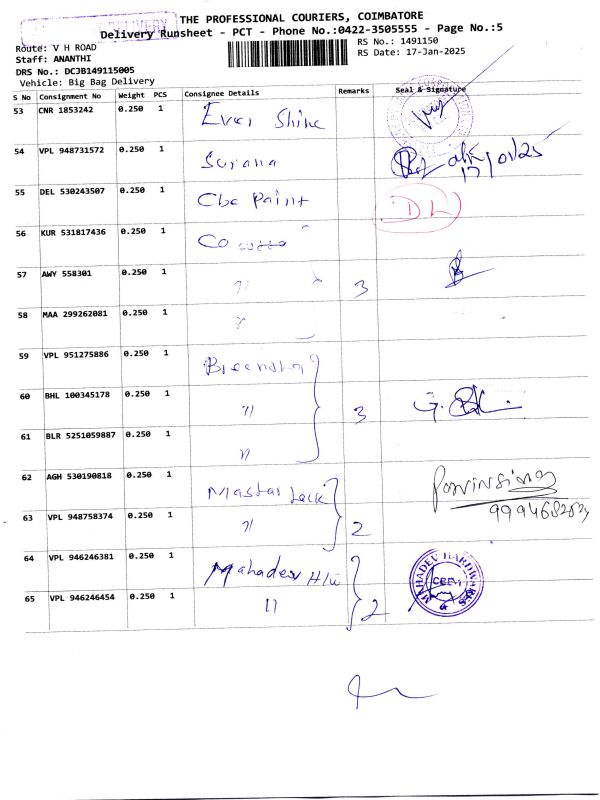 DELIVERY
THE PROFESSIONAL COURIERS, COIMBATORE
Delivery Runsheet - PCT - Phone No.:0422-3505555 - Page No.:5
Route: V H ROAD
Staff: ANANTHI
DRS No.: DCJB149115005
Vehicle: Big Bag Delivery
RS No.: 1491150
RS Date: 17-Jan-2025
S No Consignment No Weight PCS Consignee Details Remarks Seal & Signature
53 CNR 1853242 0.250 1 Ever Shine
54 VPL 948731572 0.250 1 Surana 17/01/25
55 DEL 530243507 0.250 1 Cbe Paint DL
56 KUR 531817436 0.250 1 Co
57 AWY 558301 0.250 1 " 3
58 MAA 299262081 0.250 1 "
59 VPL 951275886 0.250 1
60 BHL 100345178 0.250 1 " 3
61 BLR 5251059887 0.250 1 "
62 AGH 530190818 0.250 1 Mastar Lock
63 VPL 948758374 0.250 1 " 2
64 VPL 946246381 0.250 1 Mahadev H/w MAHADEV HARDWARES
65 VPL 946246454 0.250 1 " 2